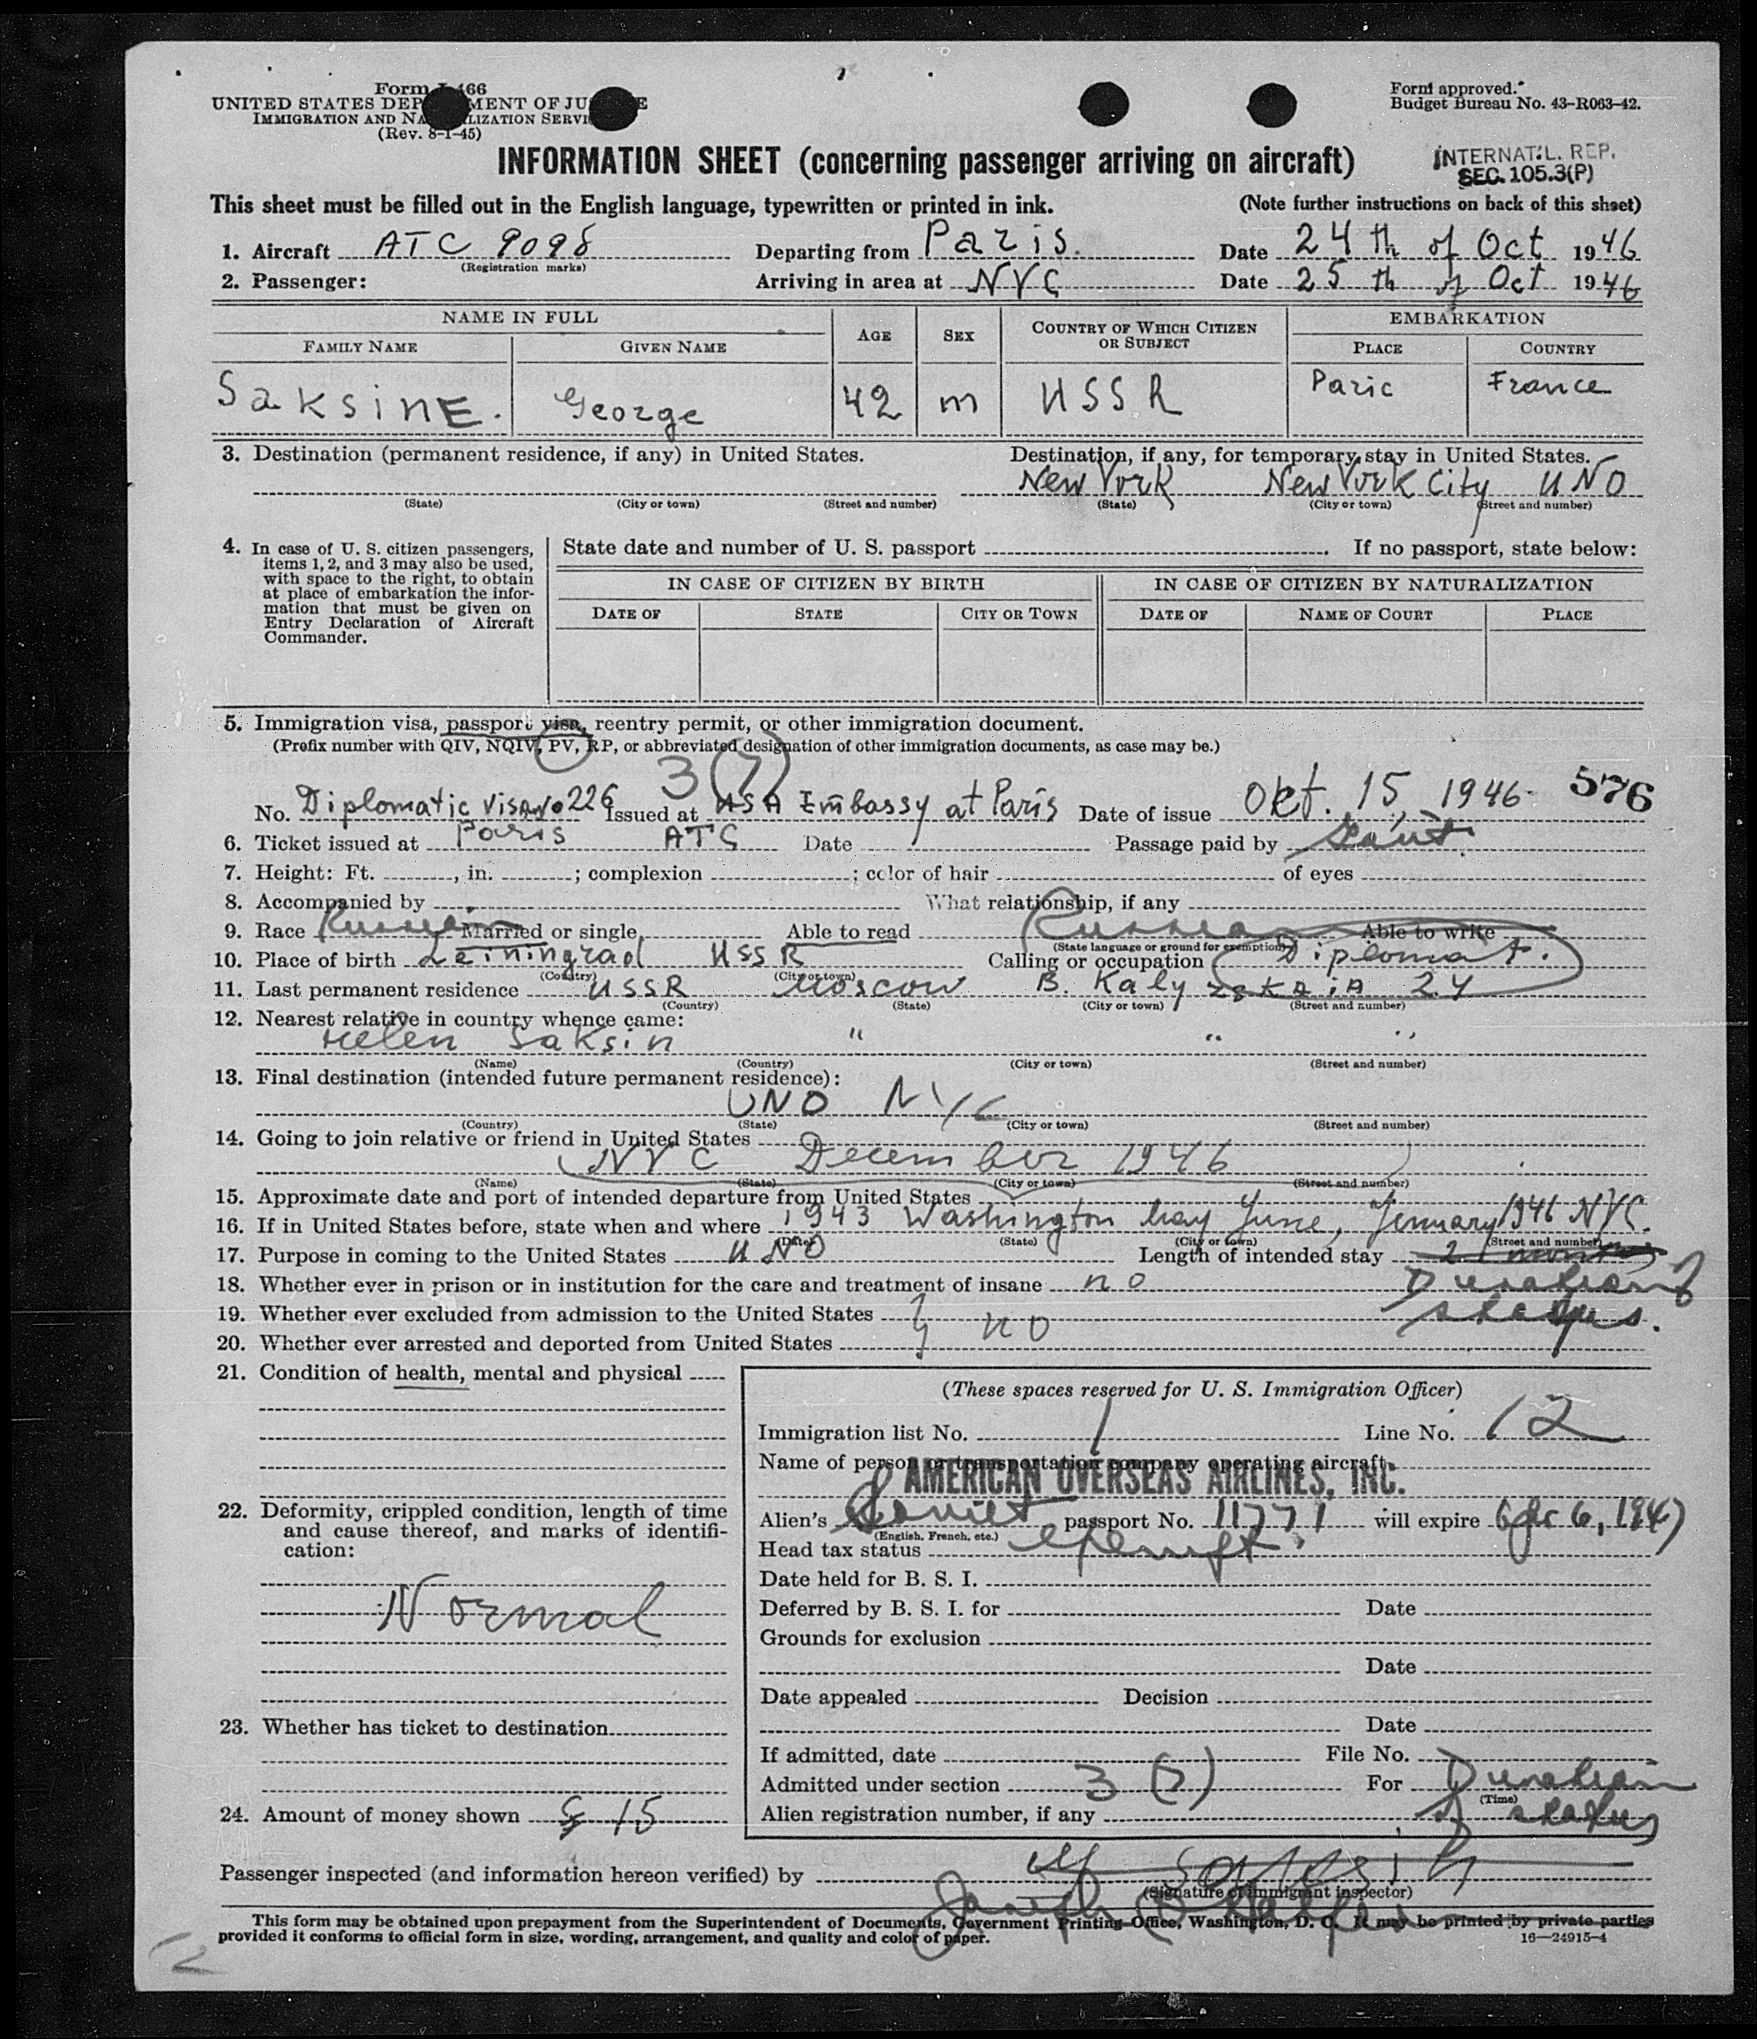 Form I-466
UNITED STATES DEPARTMENT OF JUSTICE
IMMIGRATION AND NATURALIZATION SERVICE
(Rev. 8-1-45)
Form approved.
Budget Bureau No. 43-R063-42.
INFORMATION SHEET (concerning passenger arriving on aircraft)
INTERNAT'L. REP.
SEC. 105.3(P)
This sheet must be filled out in the English language, typewritten or printed in ink. (Note further instructions on back of this sheet)
1. Aircraft ATC 9098 Departing from Paris. Date 24 th of Oct 1946
(Registration marks)
2. Passenger: Arriving in area at NYC Date 25 th of Oct 1946
NAME IN FULL AGE SEX COUNTRY OF WHICH CITIZEN OR SUBJECT EMBARKATION
FAMILY NAME GIVEN NAME PLACE COUNTRY
SaksinE. George 42 m USSR Paric France
3. Destination (permanent residence, if any) in United States. Destination, if any, for temporary stay in United States.
New York New York City UNO
(State) (City or town) (Street and number) (State) (City or town) (Street and number)
4. In case of U. S. citizen passengers, items 1, 2, and 3 may also be used, with space to the right, to obtain at place of embarkation the information that must be given on Entry Declaration of Aircraft Commander.
State date and number of U. S. passport . If no passport, state below:
IN CASE OF CITIZEN BY BIRTH IN CASE OF CITIZEN BY NATURALIZATION
DATE OF STATE CITY OR TOWN DATE OF NAME OF COURT PLACE
5. Immigration visa, passport visa, reentry permit, or other immigration document.
(Prefix number with QIV, NQIV, PV, RP, or abbreviated designation of other immigration documents, as case may be.)
3(7)
576
No. Diplomatic Visa No 226 Issued at USA Embassy at Paris Date of issue Okt. 15, 1946
6. Ticket issued at Paris ATC Date Passage paid by
7. Height: Ft. , in. ; complexion ; color of hair of eyes
8. Accompanied by What relationship, if any
9. Race Russian Married or single Able to read Russian Able to write
(State language or ground for exemption)
10. Place of birth Leiningrad USSR Calling or occupation Diplomat.
(Country) (City or town)
11. Last permanent residence USSR Moscow B. Kalyzskaia 24
(Country) (State) (City or town) (Street and number)
12. Nearest relative in country whence came:
Helen Saksin " " "
(Name) (Country) (City or town) (Street and number)
13. Final destination (intended future permanent residence):
UNO NYC
(Country) (State) (City or town) (Street and number)
14. Going to join relative or friend in United States
NYC December 1946
(Name) (State) (City or town) (Street and number)
15. Approximate date and port of intended departure from United States
16. If in United States before, state when and where 1943 Washington May June, Jenuary 1946 NYC.
(Date) (State) (City or town) (Street and number)
17. Purpose in coming to the United States UNO Length of intended stay 2 months
18. Whether ever in prison or in institution for the care and treatment of insane no Duration of
19. Whether ever excluded from admission to the United States status.
20. Whether ever arrested and deported from United States no
21. Condition of health, mental and physical
22. Deformity, crippled condition, length of time and cause thereof, and marks of identification:
Normal
23. Whether has ticket to destination
24. Amount of money shown $ 15
(These spaces reserved for U. S. Immigration Officer)
Immigration list No. 1 Line No. 12
Name of person or transportation company operating aircraft
AMERICAN OVERSEAS AIRLINES, INC.
Alien's Soviet passport No. 11771 will expire 6, 1947
(English, French, etc.)
Head tax status exempt.
Date held for B. S. I.
Deferred by B. S. I. for Date
Grounds for exclusion
Date
Date appealed Decision
Date
If admitted, date File No.
Admitted under section 3 (7) For Duration
(Time)
Alien registration number, if any of status
Passenger inspected (and information hereon verified) by
(Signature of immigrant inspector)
This form may be obtained upon prepayment from the Superintendent of Documents, Government Printing Office, Washington, D. C. It may be printed by private parties
provided it conforms to official form in size, wording, arrangement, and quality and color of paper. 16—24915-4